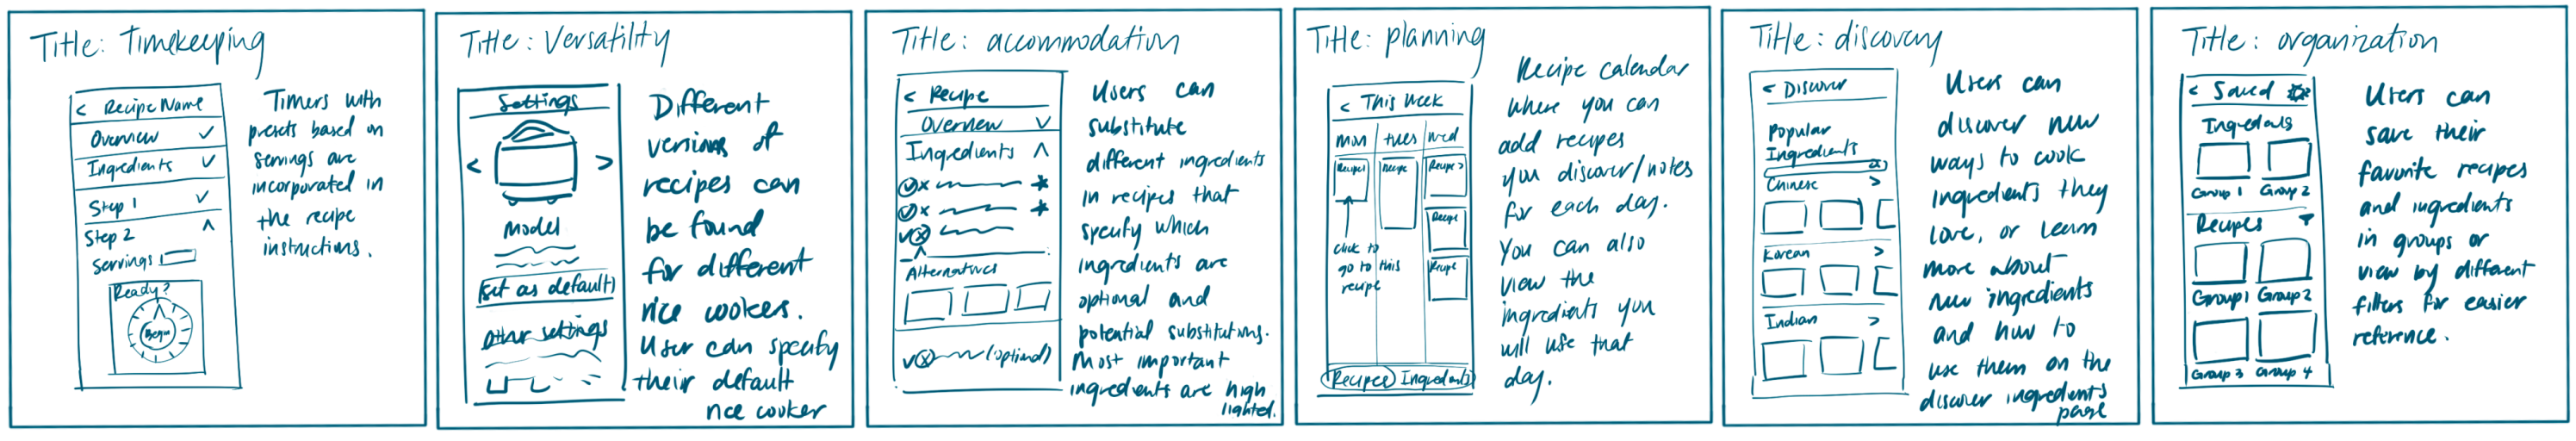 Title: Timekeeping
< Recipe Name
Overview
Ingredients
Step 1
Step 2
Servings
Ready?
Begin
Timers with
presets based on
servings are
incorporated in
the recipe
instructions.
Title: Versatility
Settings
< >
Model
Set as default
Other settings
Different
versions of
recipes can
be found
for different
rice cookers.
User can specify
their default
rice cooker
Title: accommodation
< Recipe
Overview
Ingredients
Alternatives
(optional)
Users can
substitute
different ingredients
in recipes that
specify which
ingredients are
optional and
potential substitutions.
Most important
ingredients are high
lighted.
Title: planning
< This Week
mon tues wed
Recipe Recipe Recipe
Recipe
Recipe
click to
go to this
recipe
Recipes Ingredients
Recipe calendar
where you can
add recipes
you discover/notes
for each day.
You can also
view the
ingredients you
will use that
day.
Title: discovery
< Discover
Popular
Ingredients
Chinese >
Korean >
Indian >
Users can
discover new
ways to cook
ingredients they
love, or learn
more about
new ingredients
and how to
use them on the
discover ingredients
page
Title: organization
< Saved
Ingredients
Group 1 Group 2
Recipes
Group 1 Group 2
Group 3 Group 4
Users can
save their
favorite recipes
and ingredients
in groups or
view by different
filters for easier
reference.